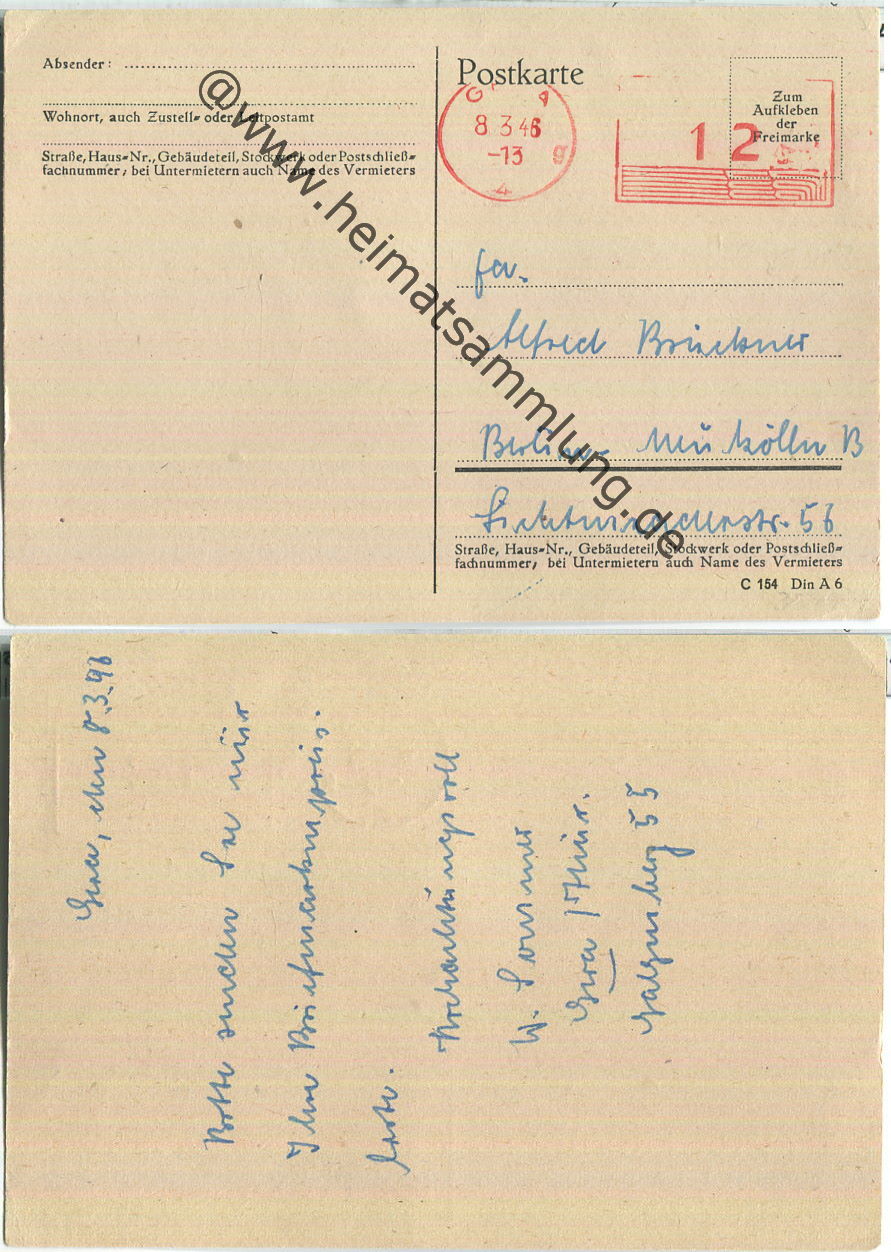 Absender:
Wohnort, auch Zustell- oder Leitpostamt
Straße, Haus-Nr., Gebäudeteil, Stockwerk oder Postschließ-
fachnummer; bei Untermietern auch Name des Vermieters
Postkarte
G A
8 3 46
-13 g
4
12
Zum
Aufkleben
der
Freimarke
Fa.
Alfred Brückner
Berlin Neukölln B
56
Straße, Haus-Nr., Gebäudeteil, Stockwerk oder Postschließ-
fachnummer; bei Untermietern auch Name des Vermieters
C 154 Din A 6
@www.heimatsammlung.de
Gera, den 8.3.46
Bitte senden Sie mir
Ihre Briefmarkenpreis-
liste.
Hochachtungsvoll
W. Sommer
Gera / Thür.
Galgenberg 55